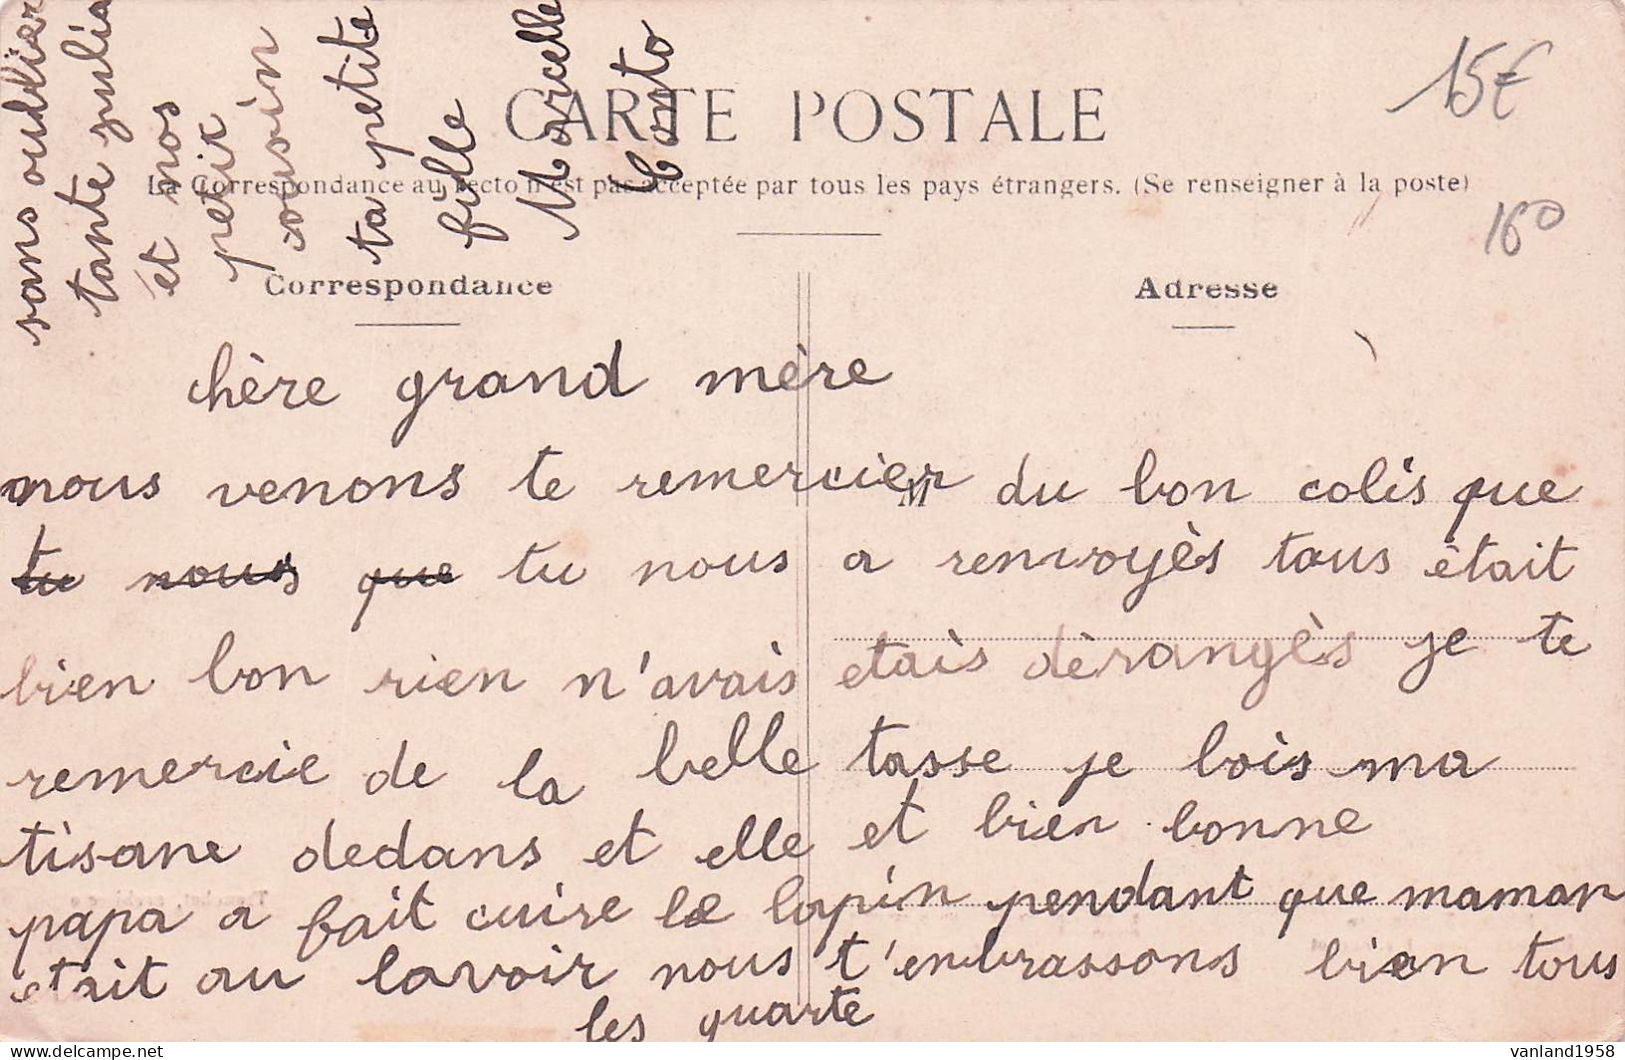 15€
160
CARTE POSTALE
La Correspondance au recto n'est pas acceptée par tous les pays étrangers. (Se renseigner à la poste)
Correspondance
Adresse
chère grand mère
nous venons te remercier du bon colis que
M
tu nous que tu nous a renvoyès tous ètait
bien bon rien n'avais etais dèrangès je te
remercie de la belle tasse je bois ma
tisane dedans et elle et bien bonne
papa a fait cuire le lapin pendant que maman
etait au lavoir nous t'enbrassons bien tous
les quarte
sans oublier
tante julia
et nos
petit
cousin
ta petite
fille
Marcelle
vanland1958